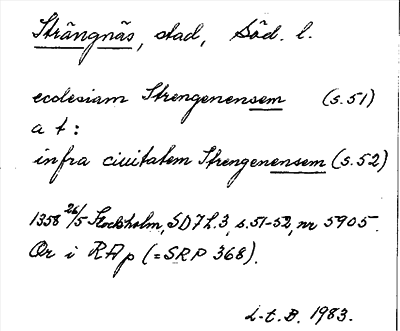 Strängnäs, stad, Söd. l.
ecclesiam Strengenensem (s.51)
a t:
infra ciuitatem Strengenensem (s.52)
1358 26/5 Stockholm, SD 7 h.3, s.51-52, nr 5905.
Or i RAp (=SRP 368).
L-t. B. 1983.